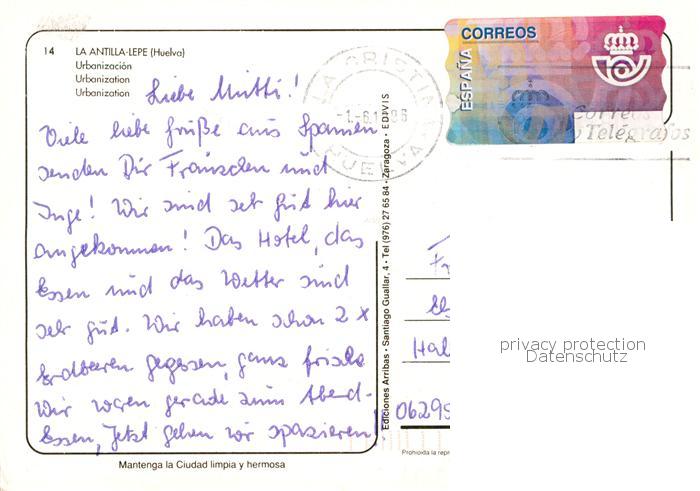 14 LA ANTILLA-LEPE (Huelva)
Urbanización
Urbanization
Urbanization
Liebe Mutti!
Viele liebe Grüße aus Spanien
senden Dir Fränzchen und
Inge! Wir sind sehr gut hier
angekommen! Das Hotel, das
Essen und das Wetter sind
sehr gut. Wir haben schon 2 x
Erdbeeren gegessen, ganz frisch
Wir waren gerade zum Abend-
Essen, Jetzt gehen wir spazieren!
Mantenga la Ciudad limpia y hermosa
Ediciones Arribas - Santiago Guallar, 4 - Tel (976) 27 65 84 - Zaragoza - EDIVIS
LA CRISTIN
-1.-6.1996
HUELVA
CORREOS
ESPAÑA
Correos
y Telégrafos
Fr
Hal
0629
Prohibida la repr
privacy protection
Datenschutz